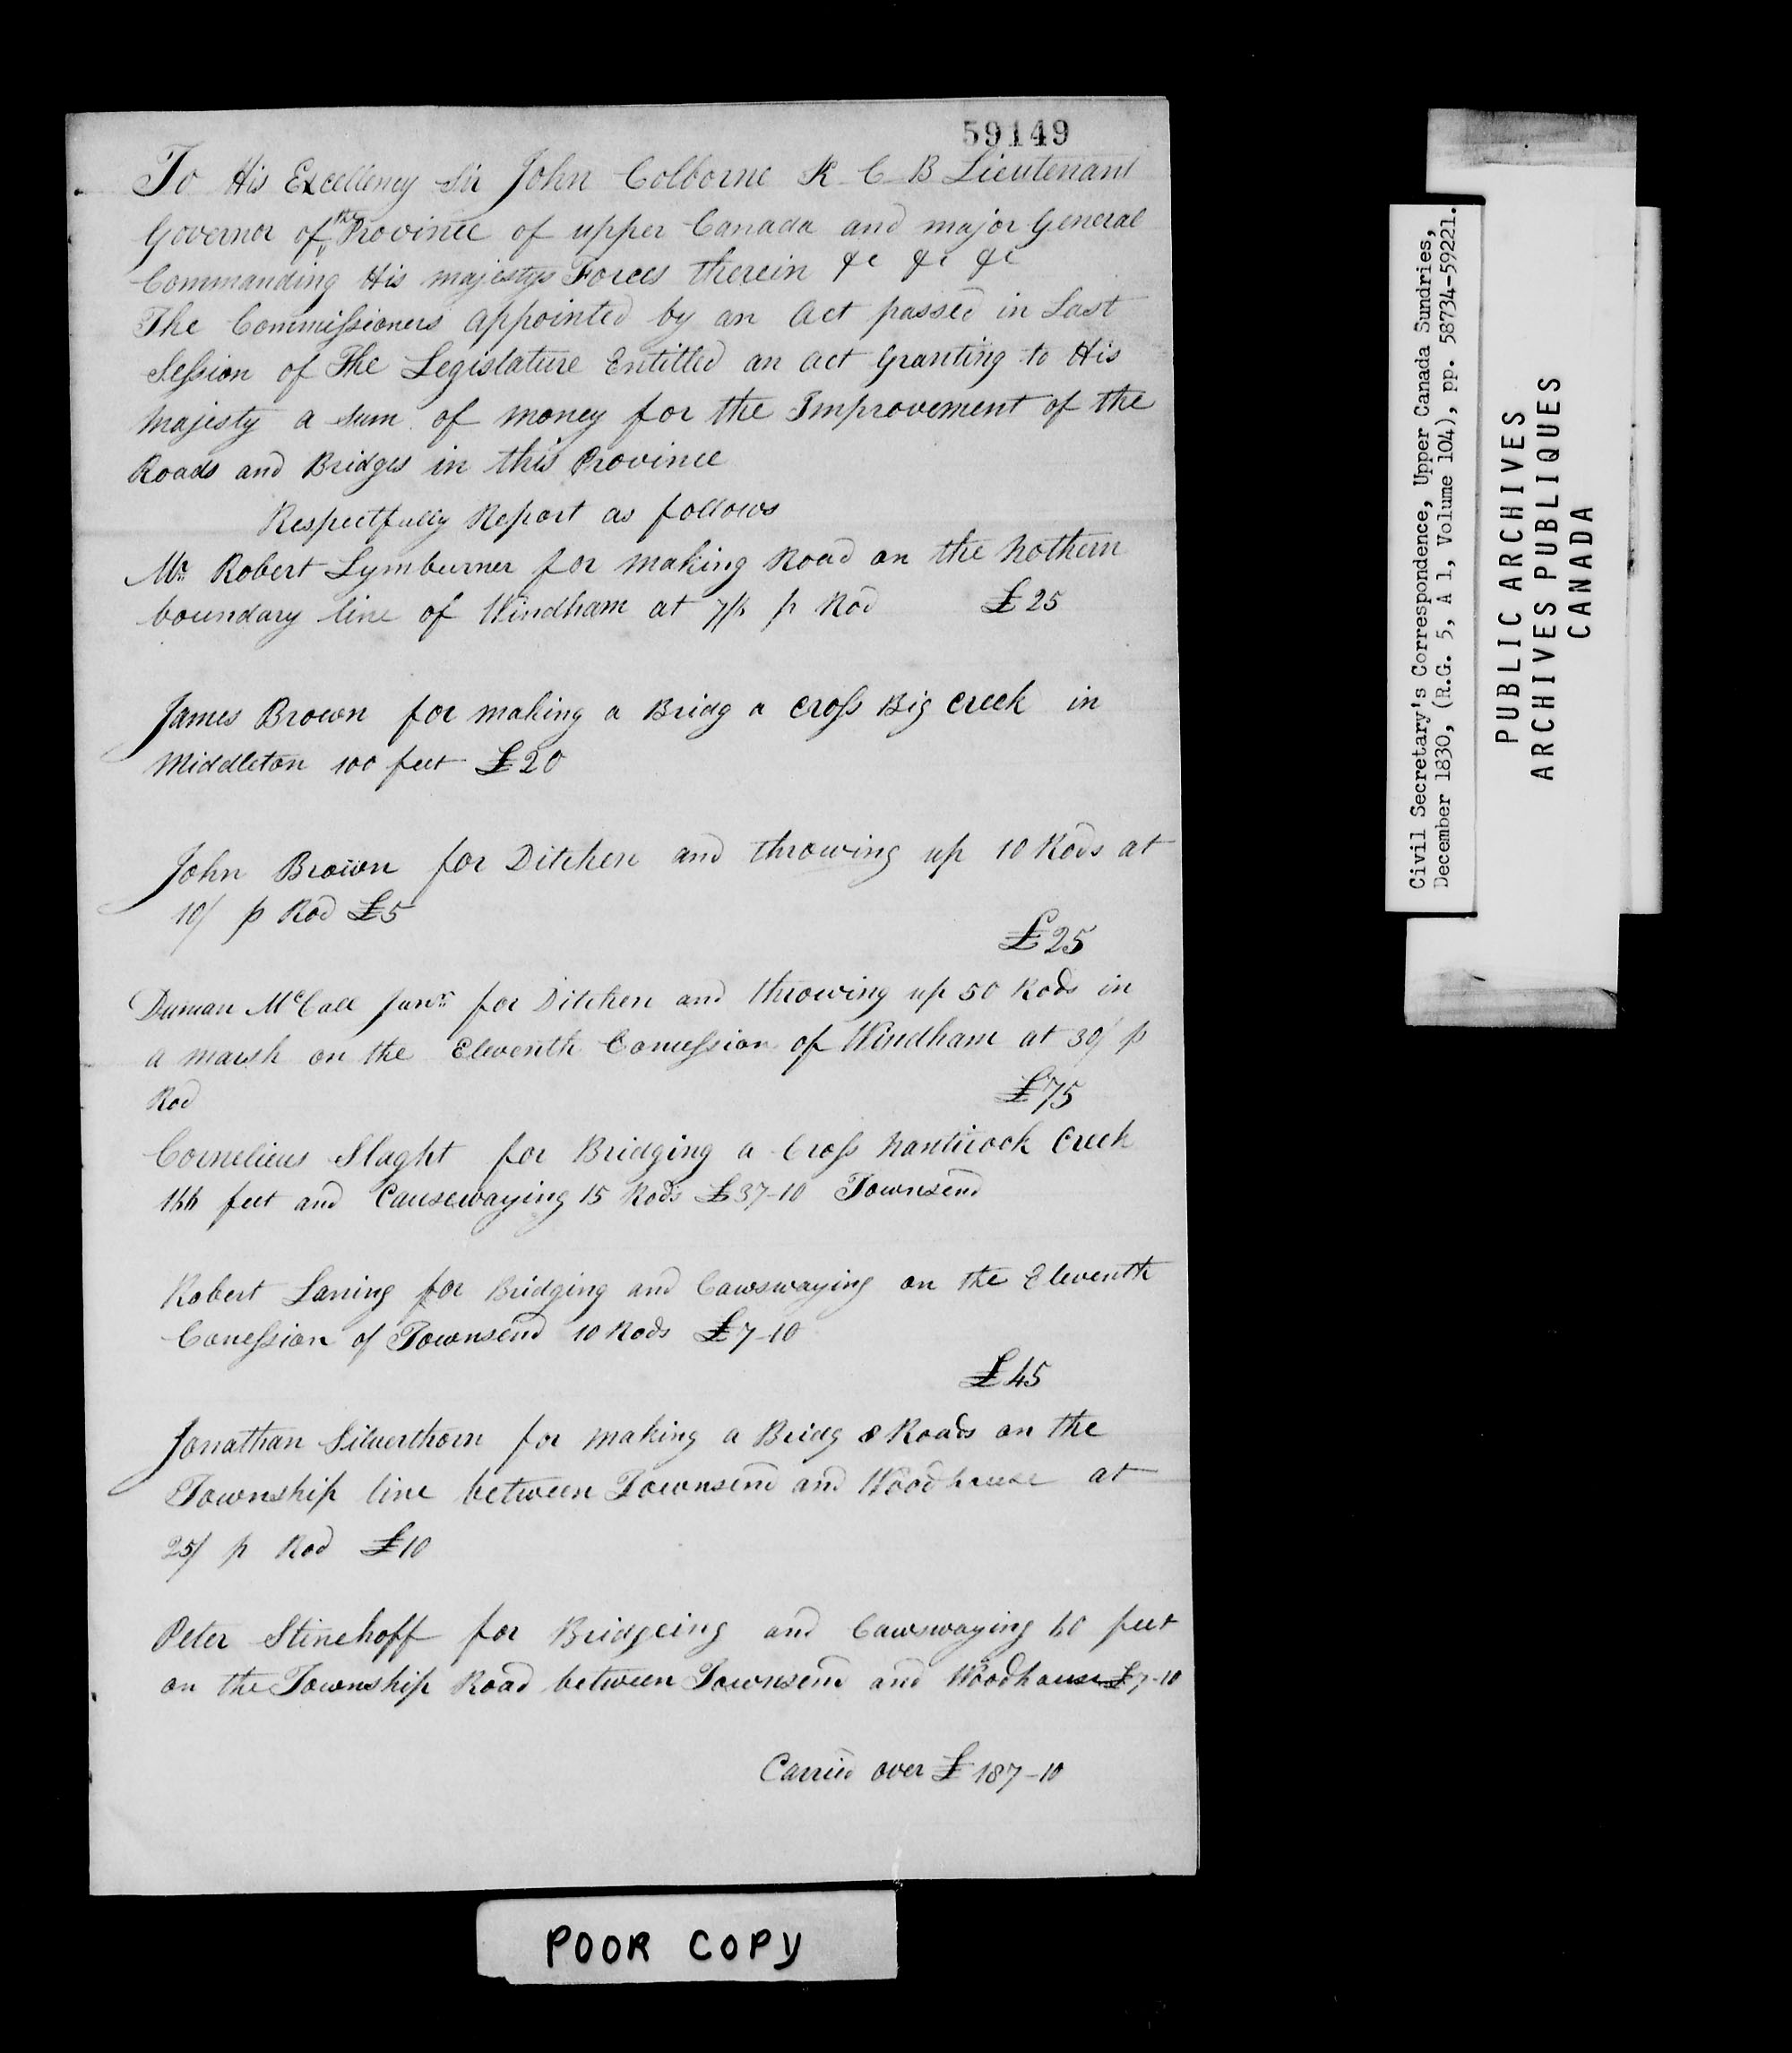 59149
To His Excellency Sir John Colborne K C B Lieutenant
Governor of the Province of upper Canada and major General
Commanding His majestys Forces therein &c &c &c
The Commissioners appointed by an Act passed in Last
Session of The Legislature Entitled an act Granting to His
majesty a Sum of money for the Improvement of the
Roads and Bridges in this Province
Respectfully Report as follows
Mr. Robert Lymburner for making Road on the Nothern
boundary line of Windham at p Rod £25
James Brown for making a Bridg a Cross Big Creek in
Middleton 100 feet £20
John Brown for Ditchen and throwing up 10 Rods at
10/ p Rod £5
£25
Duncan McCall Junr. for Ditchen and throwing up 50 Rods in
a marsh on the Eleventh Concession of Windham at 30/ p
Rod £75
Cornelieus Slaght for Bridging a Cross Nanticock Creek
feet and Causewaying 15 Rods £37-10 Townsend
Robert Laning for Bridging and Cawswaying on the Eleventh
Conession of Townsend 10 Rods £7-10
£45
Jonathan Silverthorn for making a Bridg & Roads on the
Township line between Townsend and Woodhouse at
25/ p Rod £10
Peter Stinehoff for Bridgeing and Cawswaying feet
on the Township Road between Townsend and Woodhouse £7-10
Carried over £187-10
Civil Secretary's Correspondence, Upper Canada Sundries,
December 1830, (R.G. 5, A 1, Volume 104), pp. 58734-59221.
PUBLIC ARCHIVES
ARCHIVES PUBLIQUES
CANADA
POOR COPY